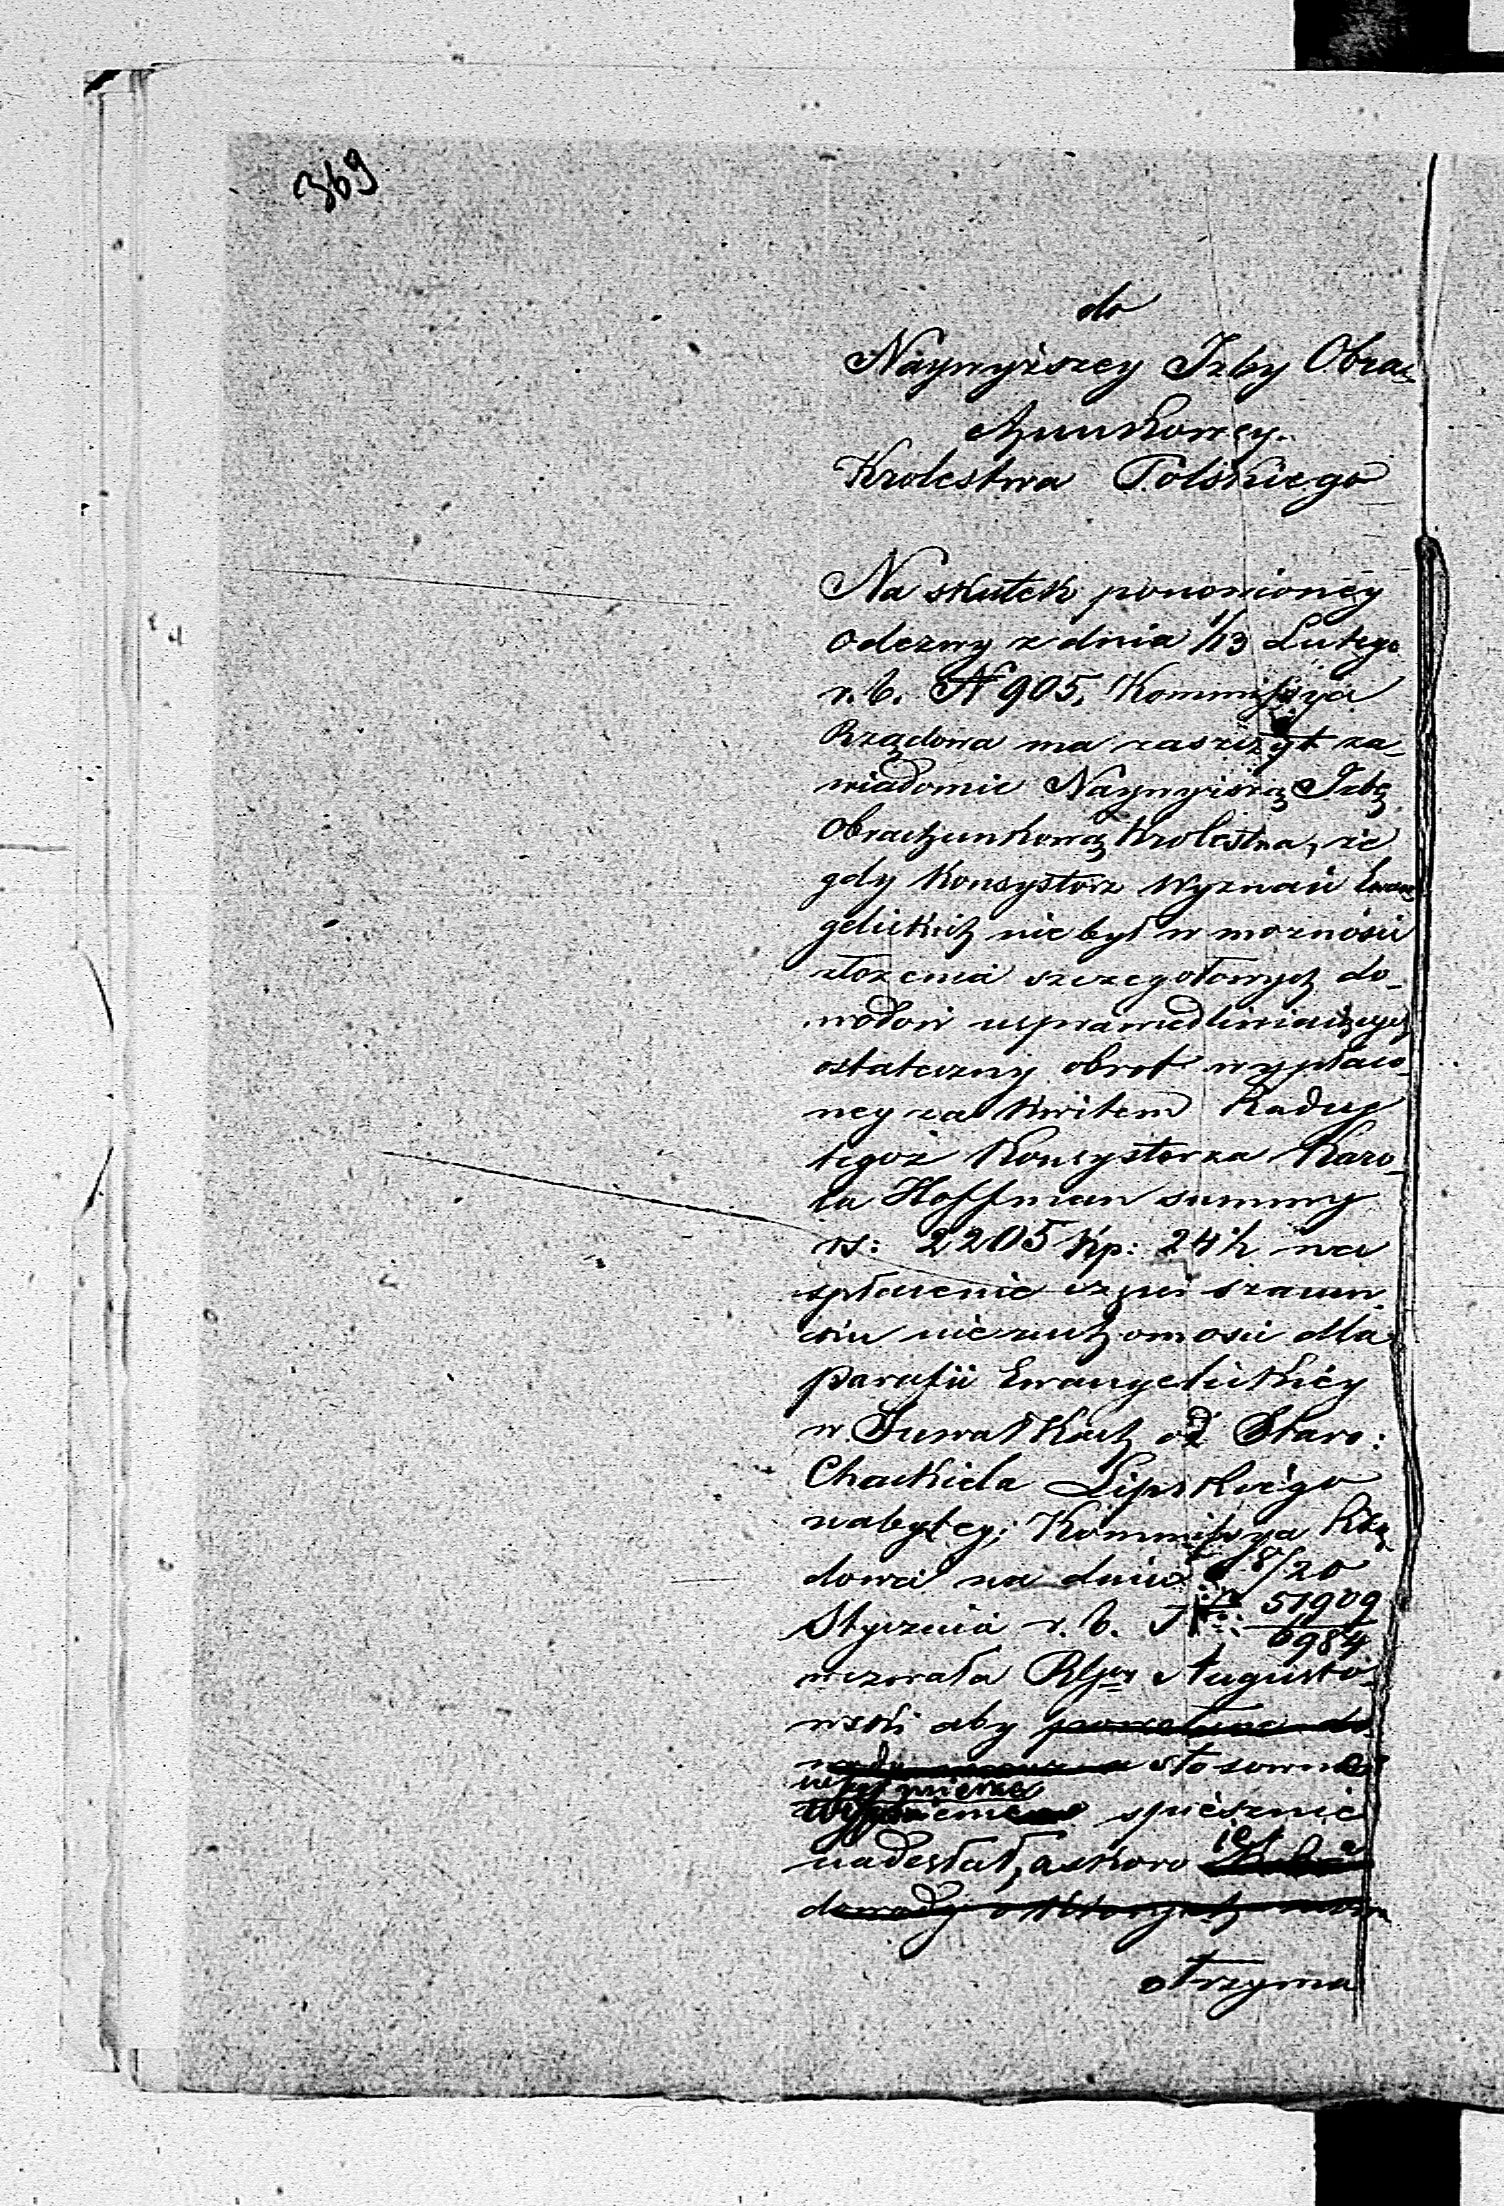 369
do
Naywyższey Izby Obra-
chunkowey.
Krolestwa Polskiego
Na skutek ponowioney
Odezwy z dnia 1/13 Lutego
r. b. N 905, Kommissya
Rządowa ma zaszczyt za-
wiadomic Naywyższą Izbę
Obrachunkową Krolestwa, że
gdy Konsystorz Wyznań Ewan
gelickich nie był w możności
złożenia szczegołowych do-
wodow usprawiedliwiaiących
ostateczny obrot wypłaco-
ney za kwitem Radcy
tegoż Konsystorza Karo-
la Hoffman summy
rs: 2205 kp: 24½ na
spłacenie części szacun-
ku nieruchomosci dla
Parafii Ewangelickiey
w Suwałkach od Staro:
Chackiela Lipskiego
nabytey; Kommissya Rzą-
dowa na dniu 8/20
Stycznia r. b. N: 51909/6984
wezwała Augusto-
wski aby
stosowne
w tey mierze
spiesznie
nadesłał, a skoro ie
dowody o ktorych
otrzyma